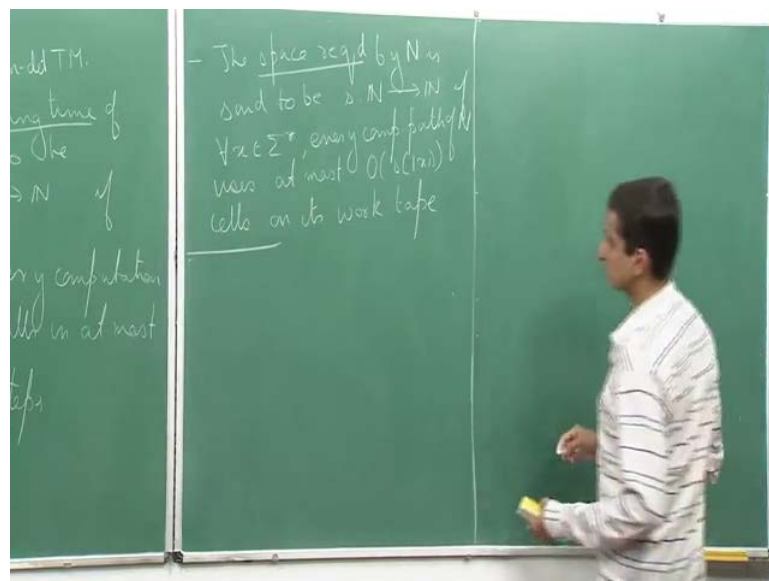 n-det TM.
ing time of
to be
→ N if
ery computation
in at most
steps
- The space reqd by N is
said to be s: N → N if
∀x ∈ Σ*, every comp. path of N
uses at most O(s(|x|))
cells on its work tape